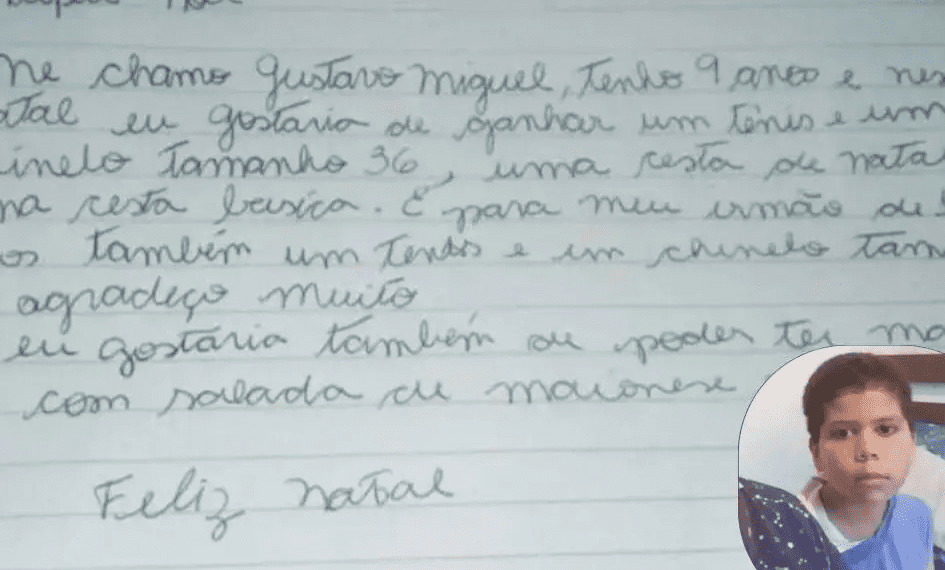 me chamo gustavo miguel, tenho 9 anos e nes
atal eu gostaria de ganhar um tênis e um
inelo tamanho 36, uma cesta de nata
ma cesta basica. E para meu irmão de
os também um tenis e um chinelo tam
agradeço muito
eu gostaria também de poder ter ma
com salada de maionese
Feliz natal